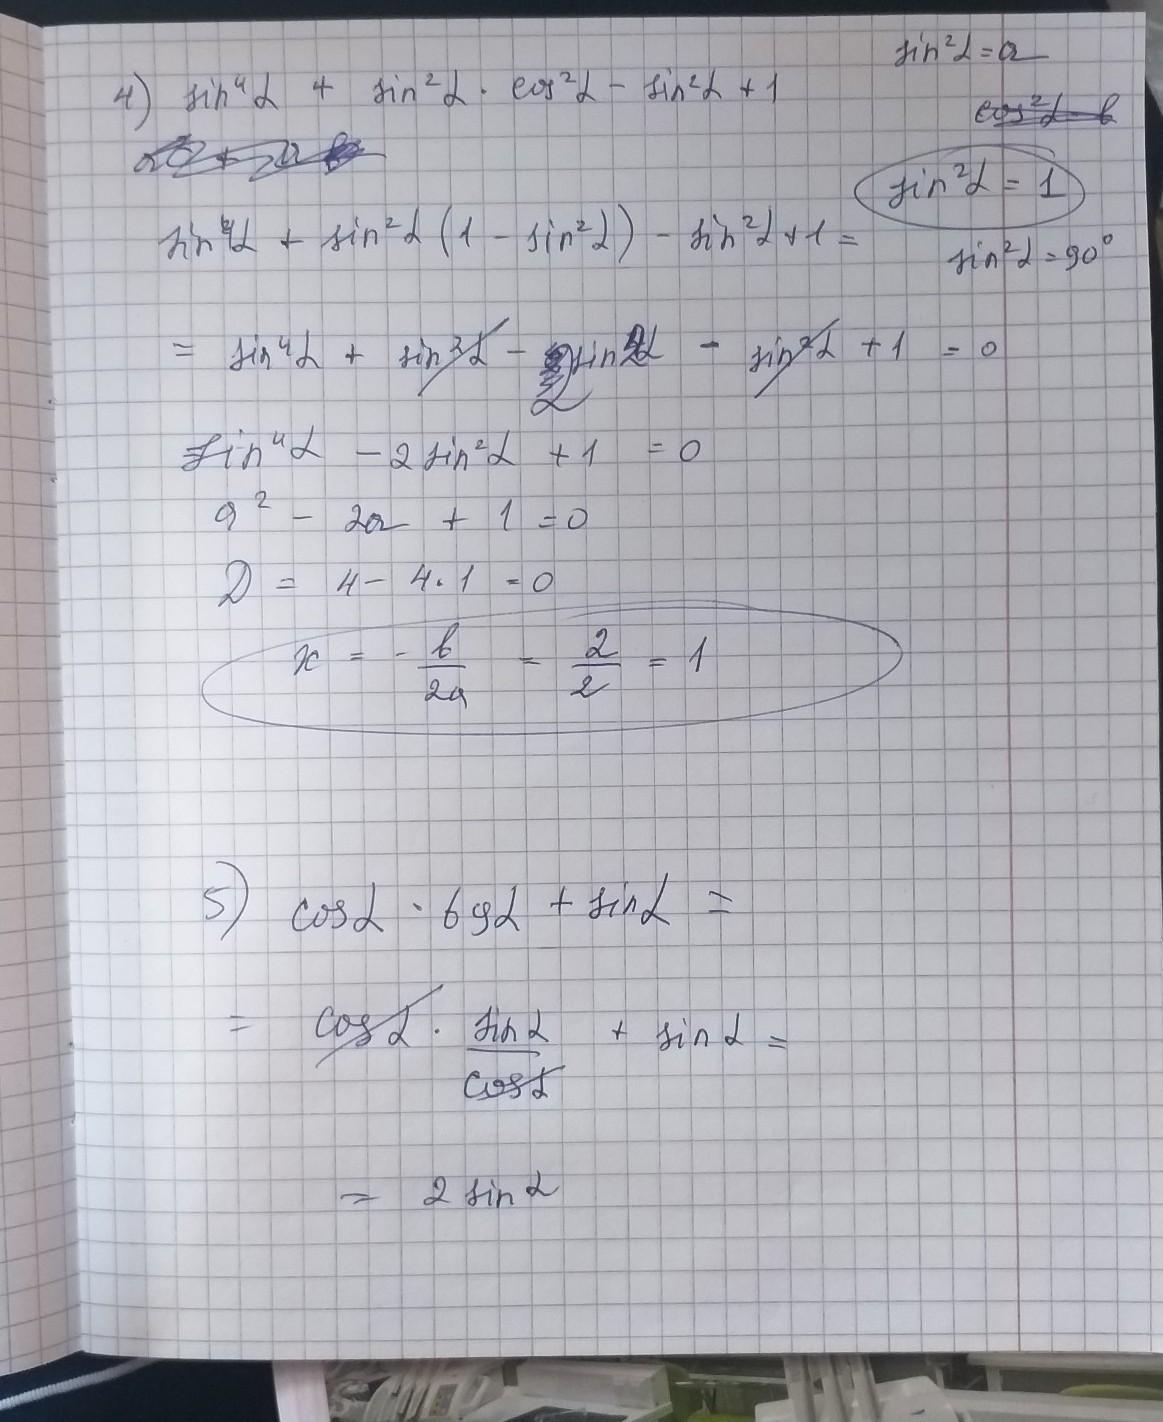 sin²α = a
4) sin⁴α + sin²α · cos²α - sin²α + 1
cos²α = b
sin²α = 1
sin⁴α + sin²α (1 - sin²α) - sin²α + 1 =
sin²α = 90°
= sin⁴α + sin²α - 2 sin²α - sin²α + 1 = 0
sin⁴α - 2 sin²α + 1 = 0
a² - 2a + 1 = 0
D = 4 - 4·1 = 0
x = - b/2a = 2/2 = 1
5) cosα · tgα + sinα =
= cosα · sinα/cosα + sinα =
= 2 sinα